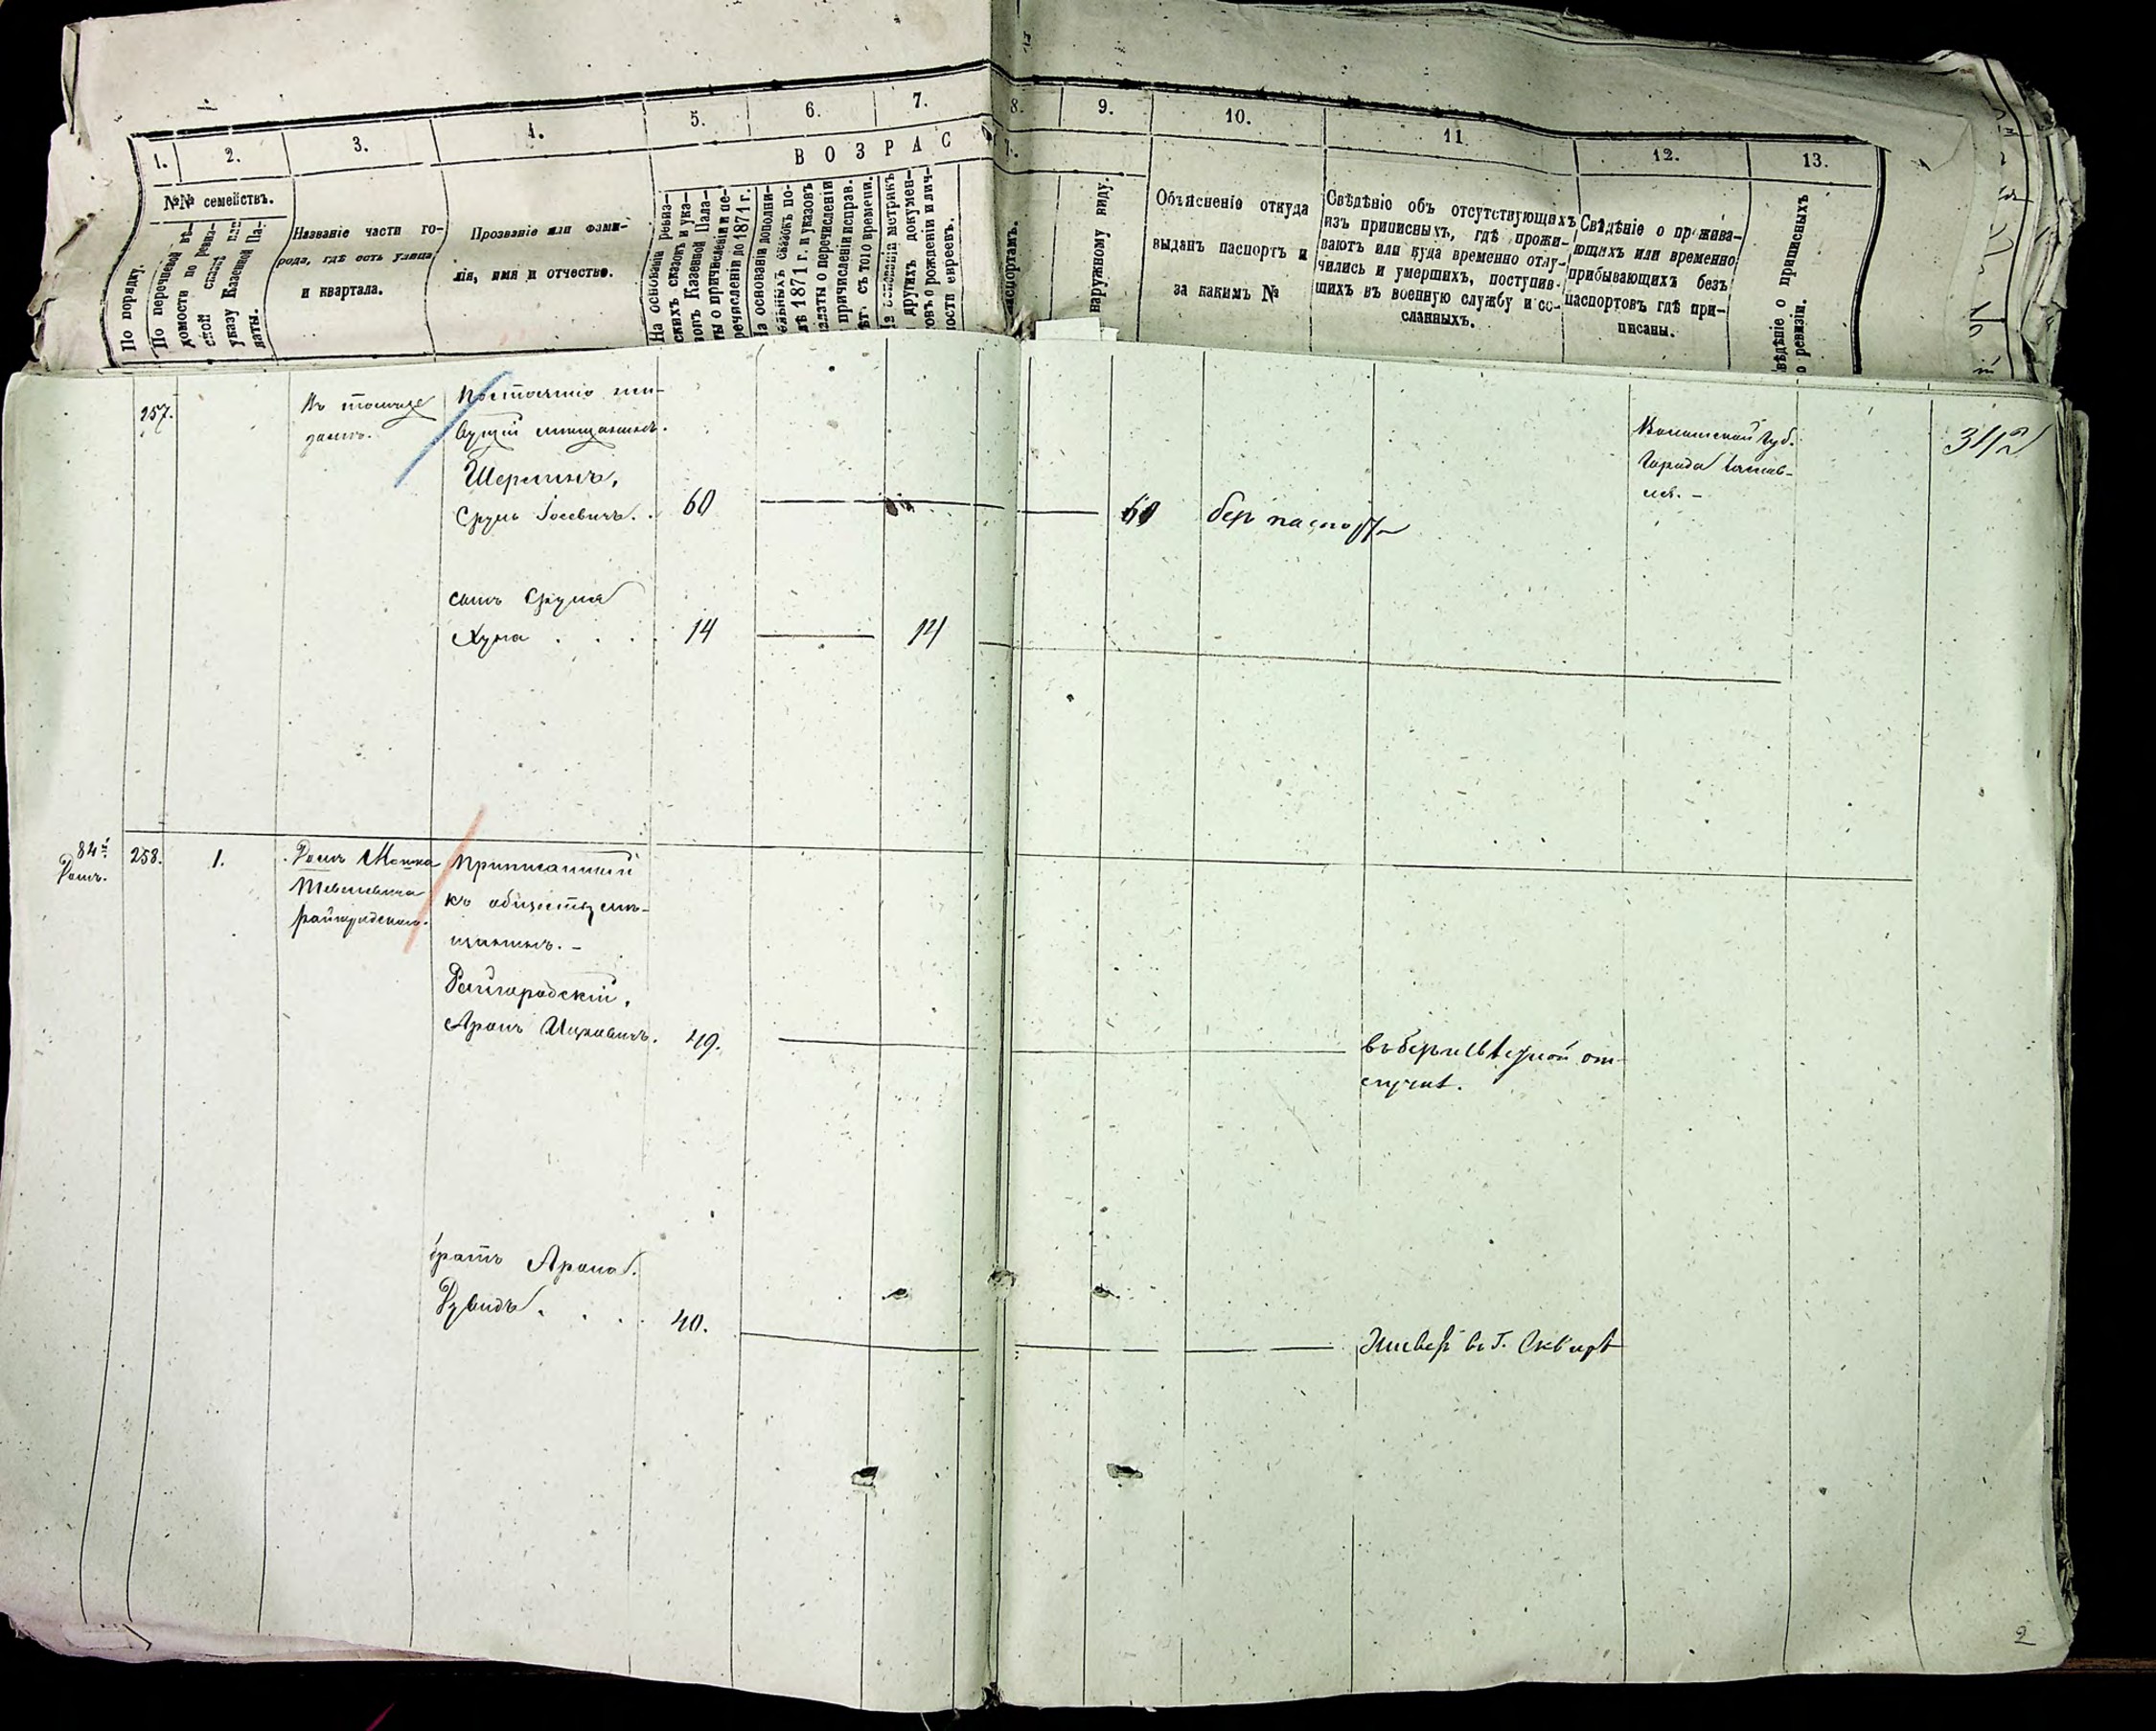 1.
2.
3.
4.
5.
6.
7.
8.
9.
10.
11
12.
13.
В О З Р А С
Т.
№№ семействъ.
По порядку.
По перечневой вѣ-
домости по ревиз-
ской сказкѣ или
указу Казенной Па-
латы.
Названіе части го-
рода, гдѣ есть улица
и квартала.
Прозваніе или фами-
лія, имя и отчество.
На основаніи ревиз-
скихъ сказокъ и ука-
зовъ Казенной Пала-
ты о причисленіи и пе-
речисленіи до 1871 г.
На основаніи дополни-
ельныхъ сказокъ по-
лѣ 1871 г. и указовъ
алаты о перечисленіи
причисленіи исправ.
ѣт. съ того времени.
На основаніи метрикъ
другихъ докумен-
товъ о рожденіи и лич-
ности евреевъ.
аспортамъ.
наружному виду.
Объясненіе откуда
выданъ паспортъ и
за какимъ №
Свѣдѣніе объ отсутствующихъ
изъ приписныхъ, гдѣ прожи-
ваютъ или куда временно отлу-
чились и умершихъ, поступив-
шихъ въ военную службу и со-
сланныхъ.
Свѣдѣніе о прожива-
ющихъ или временно
прибывающихъ безъ
паспортовъ гдѣ при-
писаны.
вѣдѣніе о приписныхъ
о ревизіи.
257.
Въ томъ же
домѣ.
Постоянно жи-
вущій мѣщанинъ.
Шерманъ,
Сруль Іосевичъ. 60
60 без паспорта
Губ.
Города Заслав-
ля. -
342
сынъ Сруля
14 14
84й
Домъ.
258. 1.
Домъ Мошка
Райгродскаго.
Приписанный
къ обществу мѣ-
щанинъ. -
Райгородскій,
Аронъ Ицковичъ. 49.
въ безъизвѣстной от-
лучкѣ.
братъ Арона
Дувидъ. . . . 40.
Живетъ въ г. Сквирѣ
2